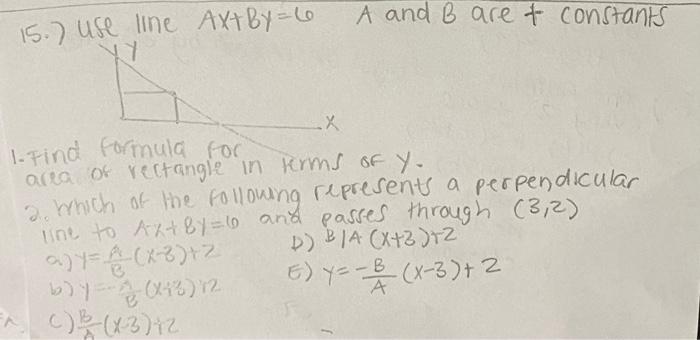 15.) use line Ax+By=6 A and B are + constants
y
x
1- Find formula for
area of rectangle in terms of y.
2. Which of the following represents a perpendicular
line to Ax+By=6 and passes through (3,2)
a) y=A/B (x-3)+2
b) y=-A/B (x+3)+2
C) B/A (x-3)+2
D) B/A (x+3)+2
E) y=-B/A (x-3)+2